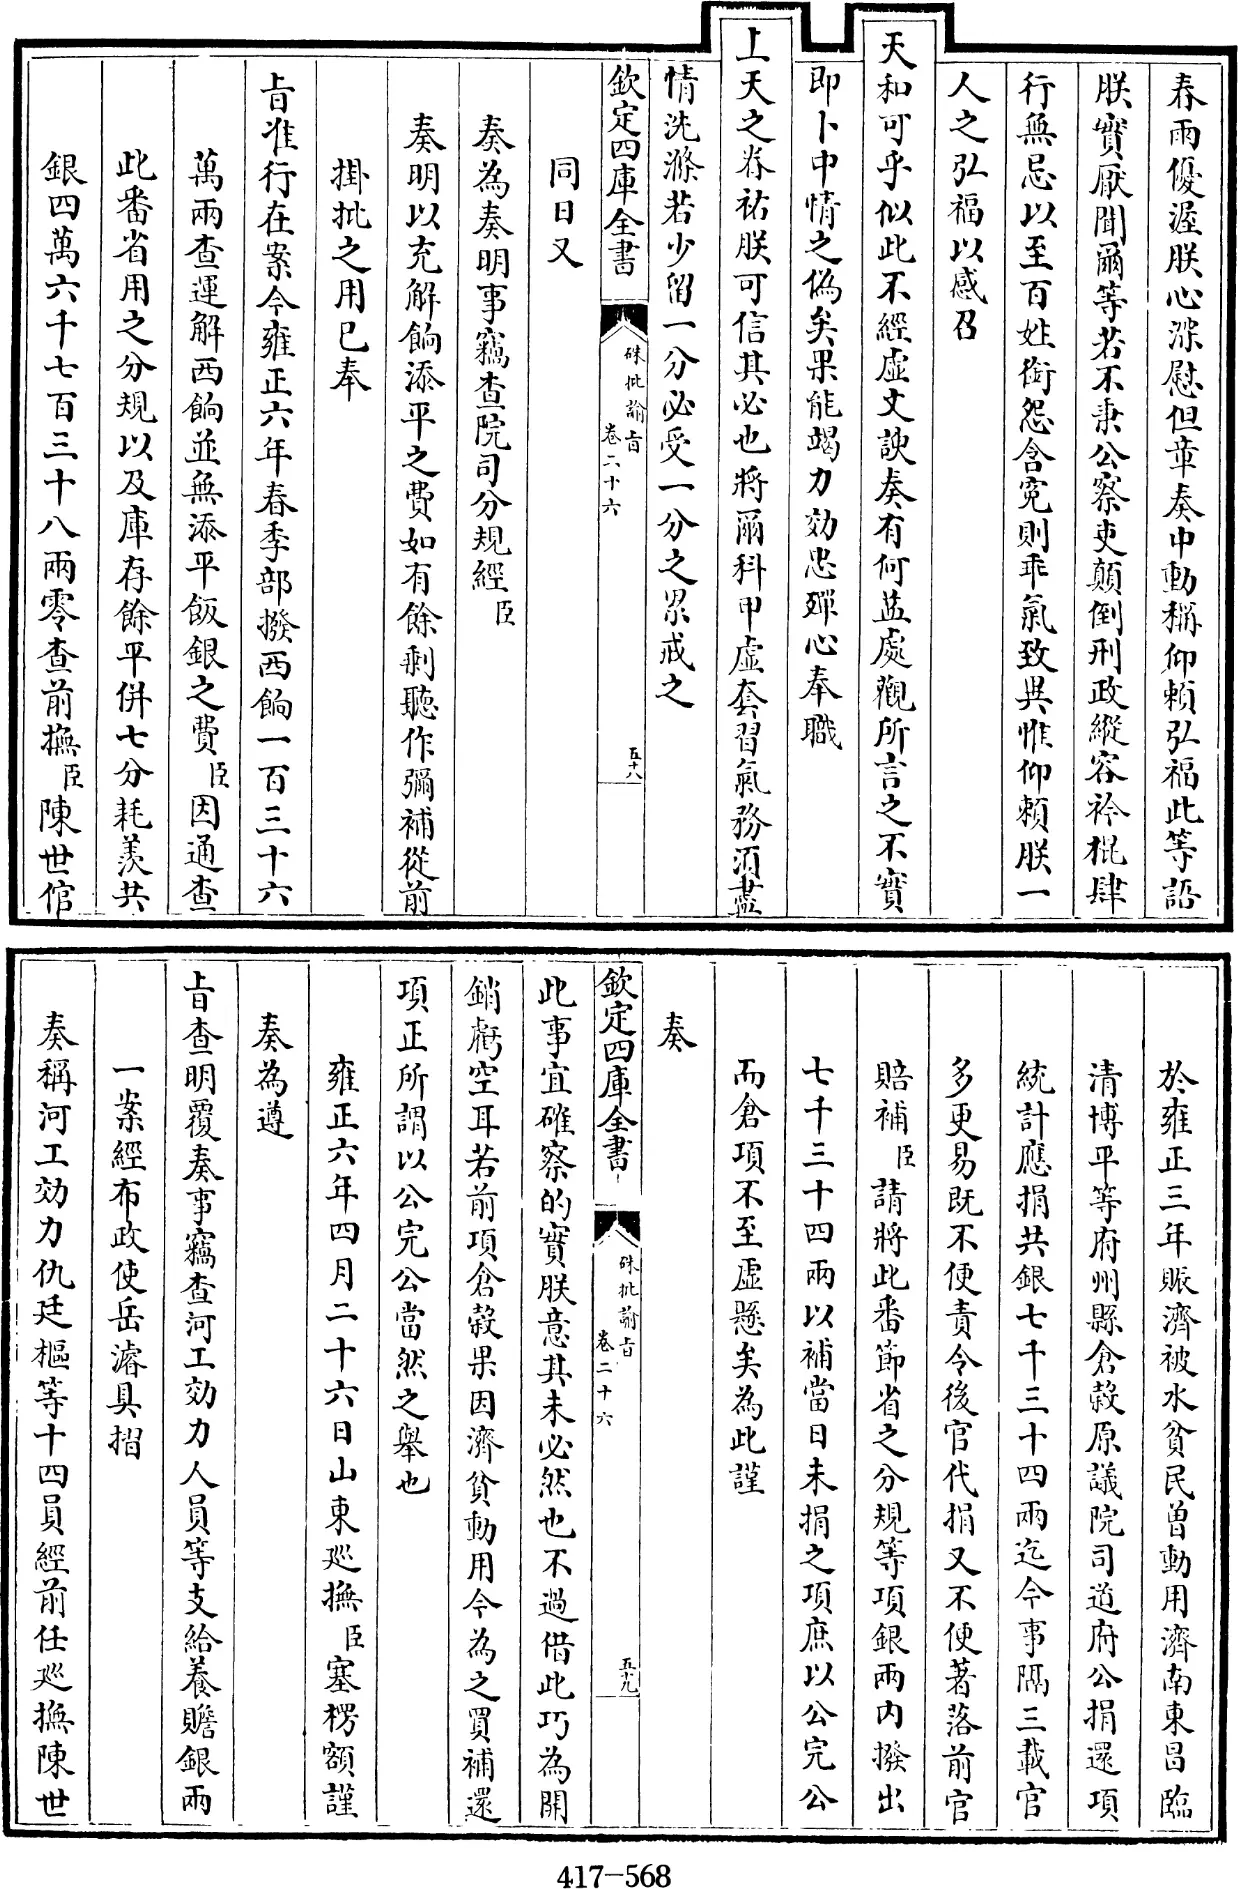 春雨優渥朕心深慰但章奏中動稱仰賴弘福此等語
朕實厭聞爾等若不秉公察吏顛倒刑政縱容衿棍肆
行無忌以至百姓銜怨含寃則乖氣致異惟仰賴朕一
人之弘福以感召
天和可乎似此不經虛文諛奏有何益處觀所言之不實
即卜中情之偽矣果能竭力効忠殫心奉職
上天之眷祐朕可信其必也將爾科甲虛套習氣務湏盡
情洗滌若少留一分必受一分之累戒之
欽定四庫全書
硃批諭旨
卷二十六
五十八
同日又
奏為奏明事竊查院司分規經臣
奏明以充解餉添平之費如有餘剩聽作彌補從前
掛批之用已奉
旨准行在案今雍正六年春季部撥西餉一百三十六
萬兩查運解西餉並無添平飯銀之費臣因通查
此番省用之分規以及庫存餘平併七分耗羨共
銀四萬六千七百三十八兩零查前撫臣陳世倌
於雍正三年賑濟被水貧民曾動用濟南東昌臨
清博平等府州縣倉穀原議院司道府公捐還項
統計應捐共銀七千三十四兩迄今事隔三載官
多更易既不便責令後官代捐又不便著落前官
賠補臣請將此番節省之分規等項銀兩內撥出
七千三十四兩以補當日未捐之項庶以公完公
而倉項不至虛懸矣為此謹
奏
欽定四庫全書
硃批諭旨
卷二十六
五十九
此事宜確察的實朕意其未必然也不過借此巧為開
銷虧空耳若前項倉穀果因濟貧動用今為之買補還
項正所謂以公完公當然之舉也
雍正六年四月二十六日山東廵撫臣塞楞額謹
奏為遵
旨查明覆奏事竊查河工効力人員等支給養贍銀兩
一案經布政使岳濬具摺
奏稱河工効力仇廷樞等十四員經前任廵撫陳世
417-568